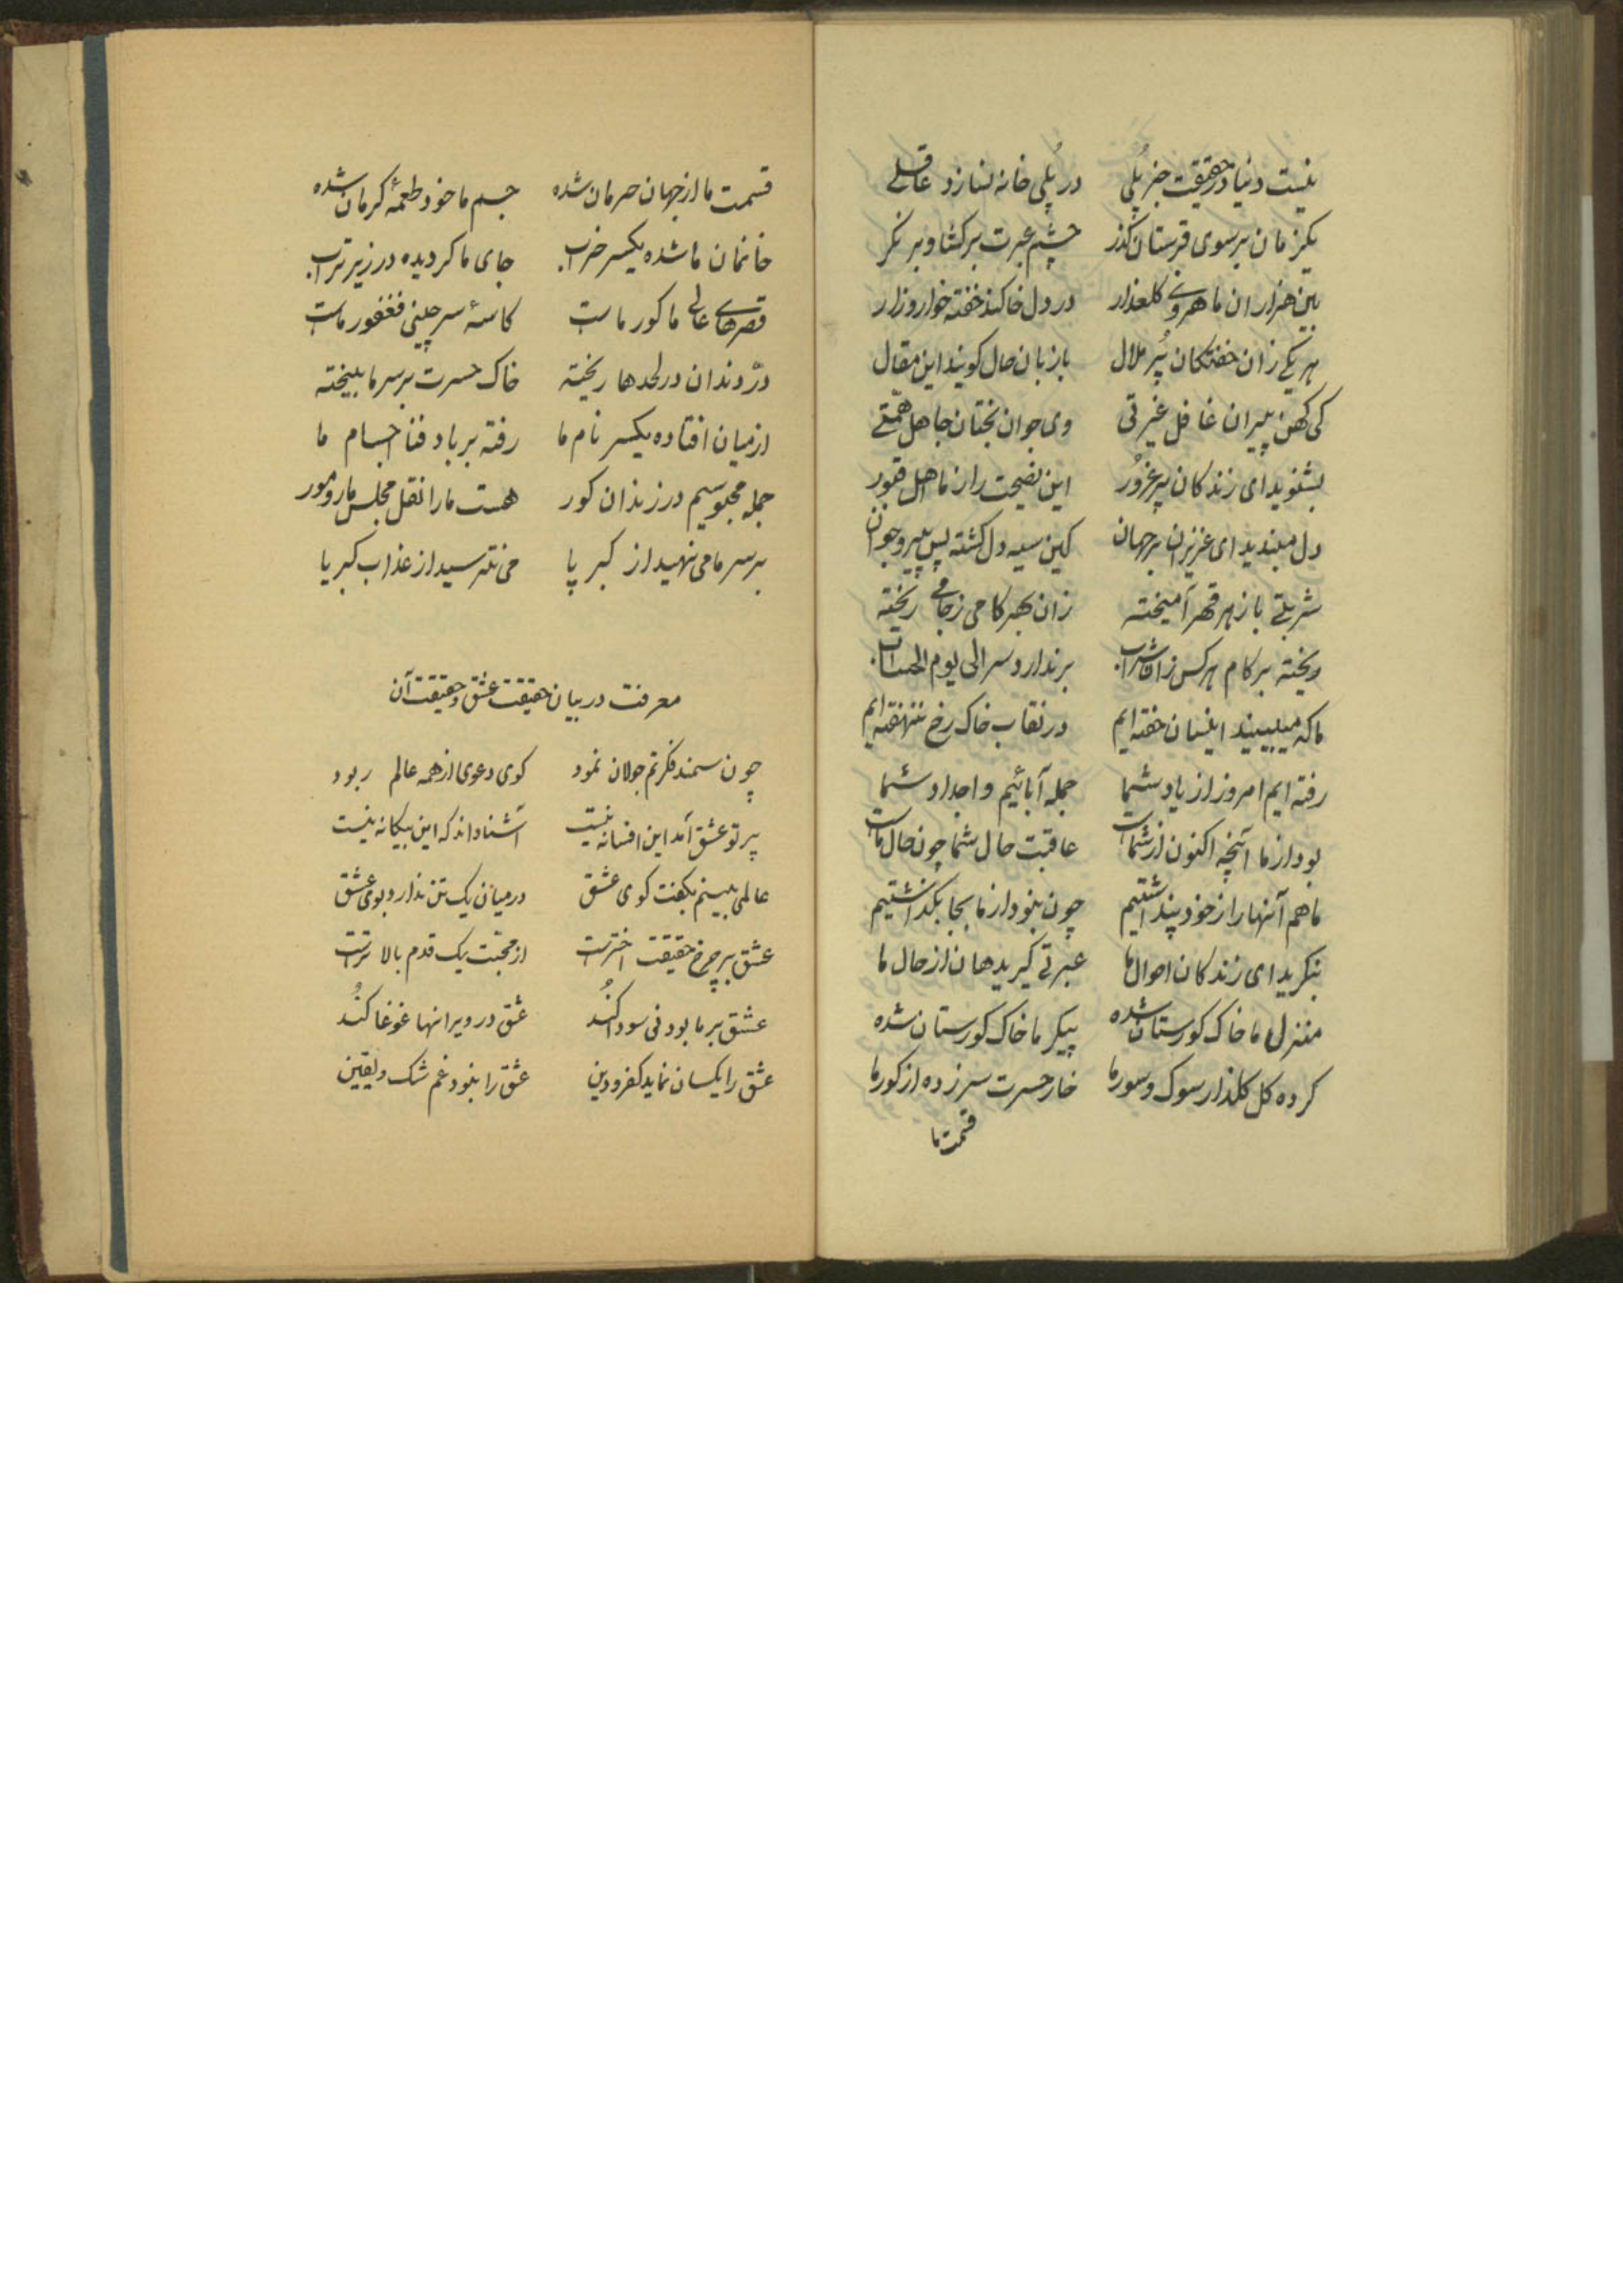 نیست دنیا در حقیقت جز پلی در پلی خانه نسازد عاقلی
یکزمان بر سوی قبرستان گذر چشم عبرت بر گشا و بر نگر
بین هزاران ماهروی گلعذار در دل خاکند خفته خوار و زار
هر یکی زان خفتگان پُر ملال با زبان حال گویند این مقال
کی کهن پیران غافل غیرتی وی جوان بختان جاهل همّتی
بشنوید ای زندگان پر غرُور این نصیحت را ز ما اهل قبور
دل مبندید ای عزیزان بر جهان کین سیه دل کشته بس پیر و جوان
شربتی با زهر قهر آمیخته زان بهر کامی ز جامی ریخته
ریخته بر کام هر کس زان شراب بر ندارد سر الی یوم الحساب
ما که میبینید اینسان خفته ایم در نقاب خاک رخ بنهفته ایم
رفته ایم امروز از یاد شما جمله آبائیم و اجداد شما
بود از ما آنچه اکنون از شماست عاقبت حال شما چون حال ماست
ما هم آنها را ز خود پنداشتیم چون نبود از ما بجا بگذاشتیم
بنگرید ای زندگان احوال ما عبرتی گیرید هان از حال ما
منزل ما خاک گورستان شده پیکر ما خاک گورستان شده
کرده گل گلزار سوک و سور ما خار حسرت سر زده از گور ما
قسمت ما
قسمت ما از جهان حرمان شده جسم ما خود طعمهٔ کرمان شده
خانمان ما شده یکسر خراب جای ما کردیده در زیر تراب
قصرهای عالی ما کور ماست کاسهٔ سر چینی فغفور ماست
درّ دندان در لحدها ریخته خاک حسرت بر سر ما بیخته
از میان افتاده یکسر نام ما رفته بر باد فنا اجسام ما
جمله محبوسیم در زندان کور هست ما را نقل مجلس مار و مور
بر سر ما می نهید از کبر پا می نترسید از عذاب کبریا
معرفت در بیان حقیقت عشق و حقیقت آن
چون سمند فکرتم جولان نمود کوی دعوی از همه عالم ربود
پرتو عشق آمد این افسانه نیست آشنا داند که این بیکانه نیست
عالمی بینم بکفت کوی عشق در میان یک تن ندارد بوی عشق
عشق بر چرخ حقیقت اخترست از محبّت یک قدم بالا ترست
عشق بر ما بود فی سودا کنُد عشق در ویرانها غوغا کنُد
عشق را یکسان نماید کفر و دین عشق را نبود غم شک و یقین